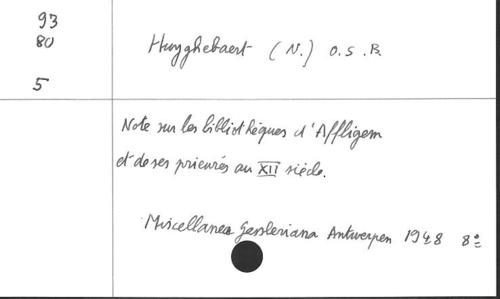 93
80
5
Huyghebaert (N.) O.S.B.
Note sur les bibliothèques d'Affligem
et de ses prieurés au XII siècle.
Miscellanea Gessleriana Antwerpen 1948 8°